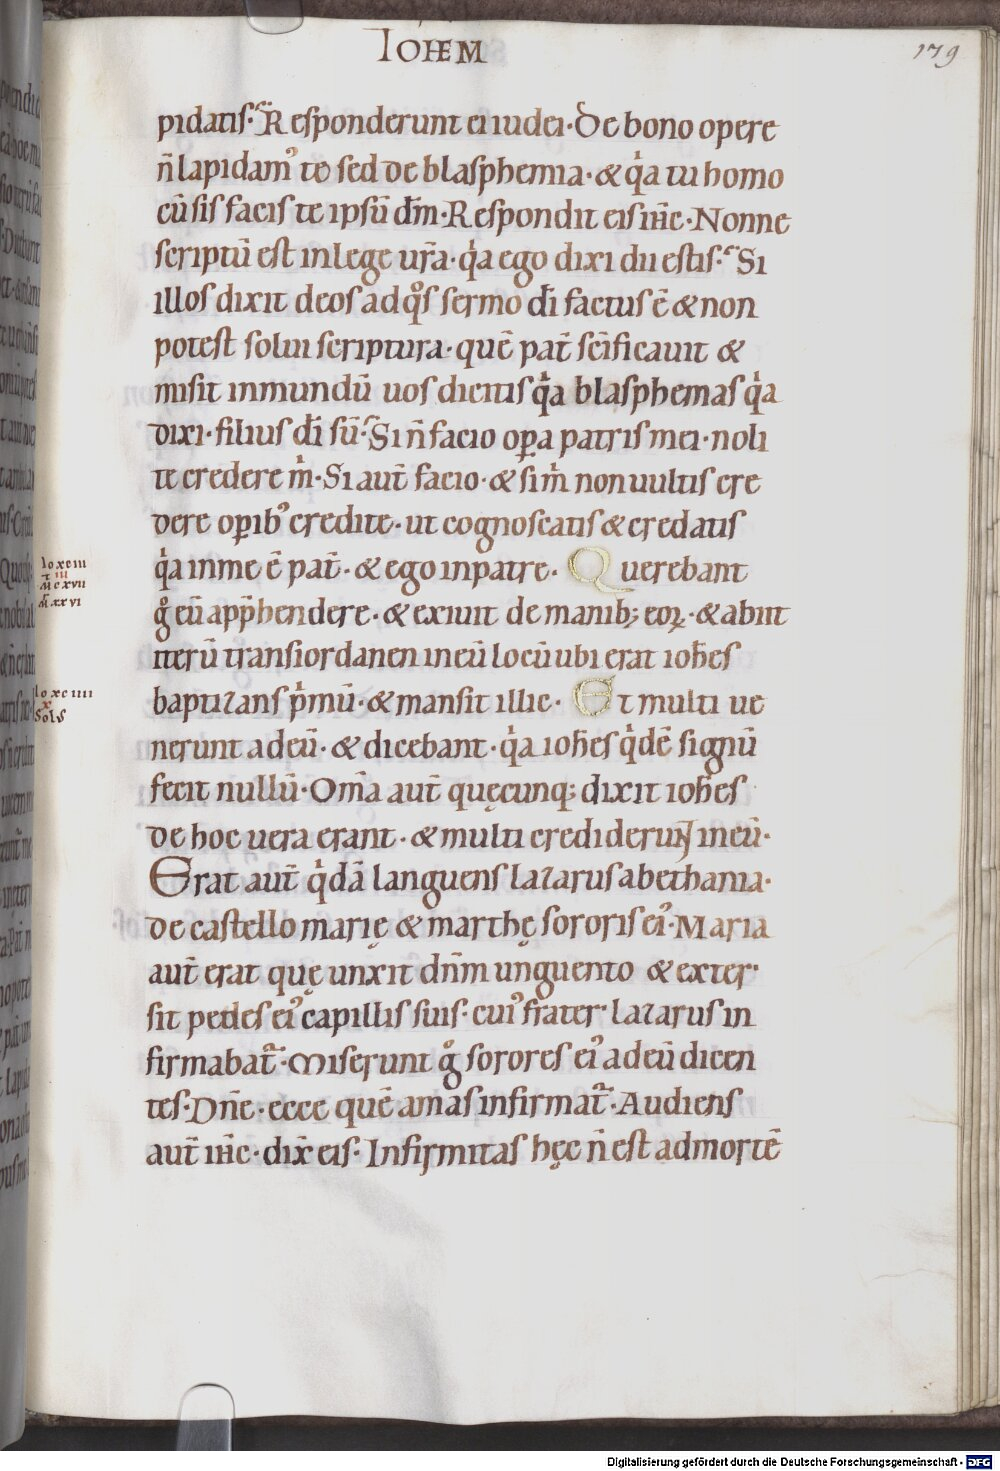 IOHEM
179
pidatis· Responderunt ei iudei· De bono opere
n̄ lapidam᾿ te sed de blasphemia· & qͥa tu homo
cū sis facis te ipsū dm̄· Respondit eis ih̄c· Nonne
scriptū est in lege ur̄a· qͥa ego dixi dii estis· Si
illos dixit deos ad qͦs sermo dī factus ē & non
potest solui scriptura· quē pat̄ sc̄ificauit &
misit in mundū uos dicitis qͥa blasphemas qͥa
dixi· filius dī sū· Si n̄ facio oꝑa patris mei· noli
te credere mͥ· Si aut̄ facio· & si mͥ non uultis cre
dere oꝑib᾿ credite· ut cognoscatis & credatis
qͥa in me ē pat̄· & ego in patre· Querebant
gͦ eū app̄hendere· & exiuit de manib; eoꝝ· & abiit
iterū trans iordanen in eū locū ubi erat ioh̄es
baptizans pͥmū· & mansit illic· Et multi ue
nerunt ad eū· & dicebant· qͥa ioh̄es qͥdē signū
fecit nullū· Om̄a aut̄ quęcunq; dixit ioh̄es
de hoc uera erant· & multi crediderunt in eū·
Erat aut̄ qͥdā languens lazarus a bethania·
de castello marię & marthę sororis ei᾿· Maria
aut̄ erat quę unxit dn̄m unguento & exter·
sit pedes ei᾿ capillis suis· cui᾿ frater· lazarus in
firmabat᷑· Miserunt gͦ sorores ei᾿ ad eū dicen
tes· Dn̄e· ecce quē amas infirmat᷑· Audiens
aut̄ ih̄c· dix̄ eis· Infirmitas hęc n̄ est ad mortē
Io xciii
m̄ cxvii
Io xciiii
x
Solus
Digitalisierung gefördert durch die Deutsche Forschungsgemeinschaft - DFG